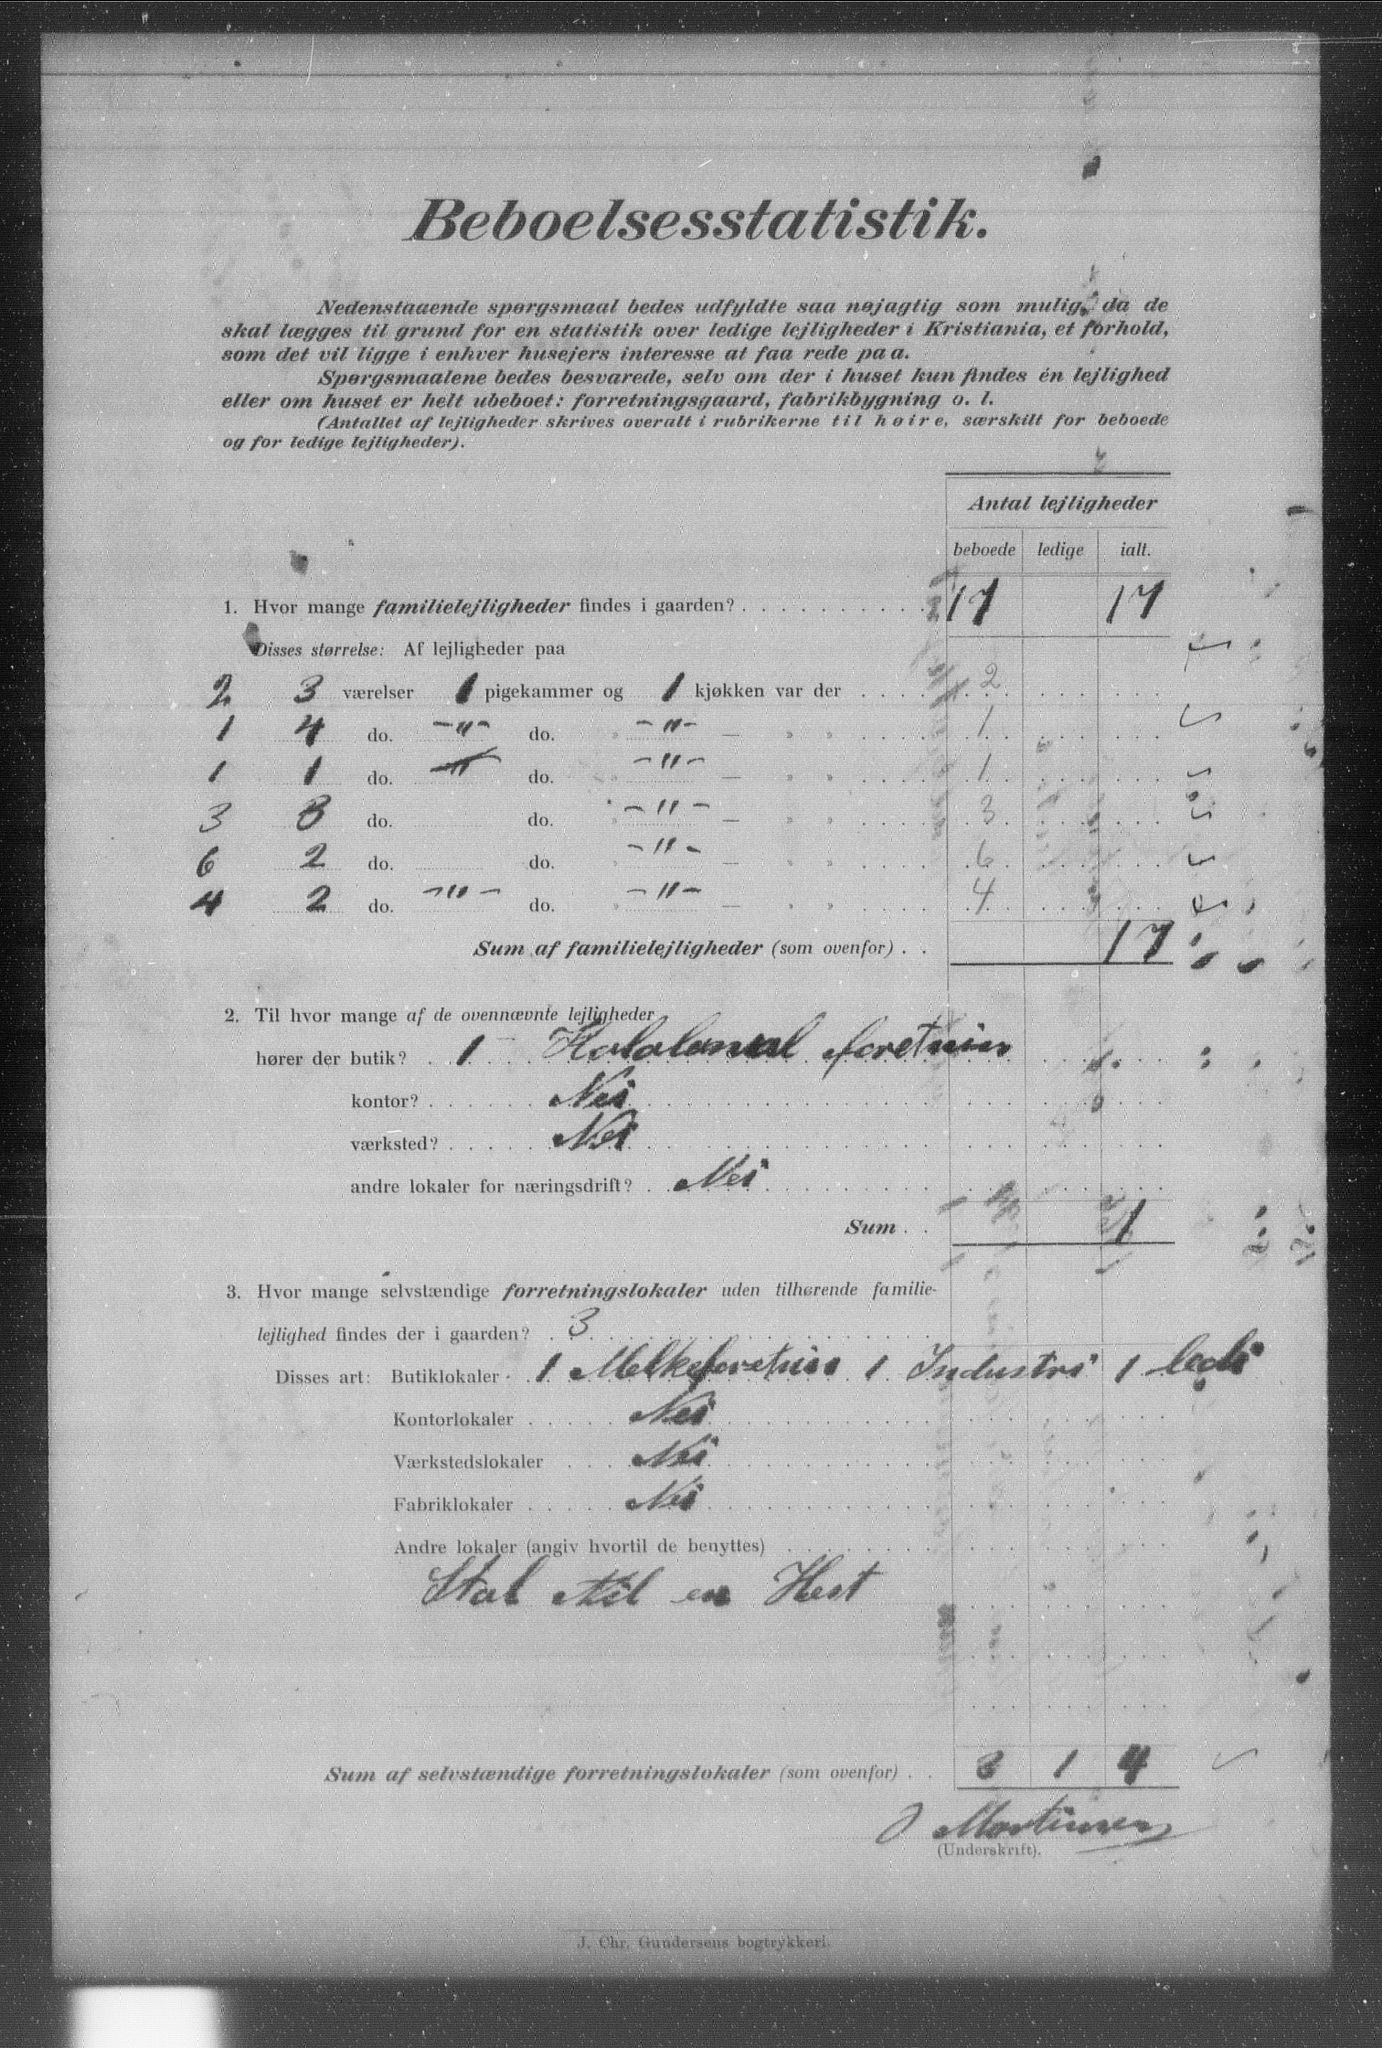 Beboelsesstatistik.
Nedenstaaende spørgsmaal bedes udfyldte saa nøjagtig som mulig, da de
skal lægges til grund for en statistik over ledige lejligheder i Kristiania, et forhold,
som det vil ligge i enhver husejers interesse at faa rede paa.
Spørgsmaalene bedes besvarede, selv om der i huset kun findes én lejlighed
eller om huset er helt ubeboet: forretningsgaard, fabrikbygning o. l.
(Antallet af lejligheder skrives overalt i rubrikerne til høire, særskilt for beboede
og for ledige lejligheder).
Antal lejligheder
beboede ledige ialt.
1. Hvor mange familielejligheder findes i gaarden? . . . . . . . . . . 17 17
Disses størrelse: Af lejligheder paa
2 3 værelser 1 pigekammer og 1 kjøkken var der . . . . 2
1 4 do. -"- do. " -"- — " " . . . . 1
1 1 do. -"- do. -"- — " " . . . . 1
3 3 do. do. " -"- — " " . . . . 3
6 2 do. do. " -"- — " " . . . . 6
4 2 do. -"- do. " -"- — " " . . . . 4
Sum af familielejligheder (som ovenfor) . . 17
2. Til hvor mange af de ovennævnte lejligheder
hører der butik? . . 1 Kololonial foretnin
kontor? . . . . . . Nei
værksted? . . . . . Nei
andre lokaler for næringsdrift? . . Nei
Sum . . 1
3. Hvor mange selvstændige forretningslokaler uden tilhørende familie-
lejlighed findes der i gaarden? . 3
Disses art: Butiklokaler . 1 Melkeforetnin 1 Industri 1 ledi
Kontorlokaler . . . . . Nei
Værkstedslokaler . . . . Nei
Fabriklokaler . . . . . Nei
Andre lokaler (angiv hvortil de benyttes) . . . . . . . .
Stal til en Hest
Sum af selvstændige forretningslokaler (som ovenfor) . . 3 1 4
J Mortinsen
(Underskrift).
J. Chr. Gundersens bogtrykkeri.